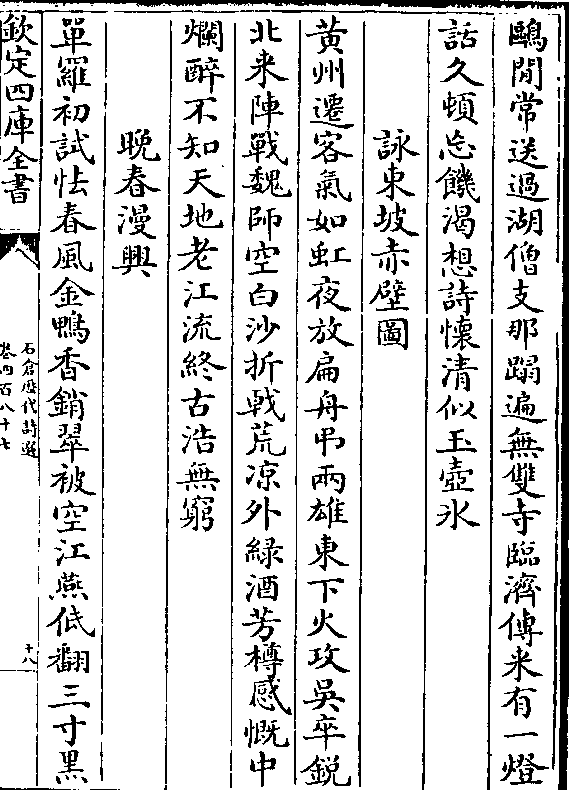 鷗閒常送過湖僧支那蹋遍無雙寺臨濟傳来有一燈
話久頓忘饑渴想詩懷清似玉壺冰
詠東坡赤壁圖
黄州遷客氣如虹夜放扁舟弔兩雄東下火攻吳卒鋭
北来陣戰魏師空白沙折戟荒凉外緑酒芳樽感慨中
爛醉不知天地老江流終古浩無窮
晚春漫興
單羅初試怯春風金鴨香銷翠被空江燕低翻三寸黒
欽定四庫全書
石倉歴代詩選
卷四百八十七
十八